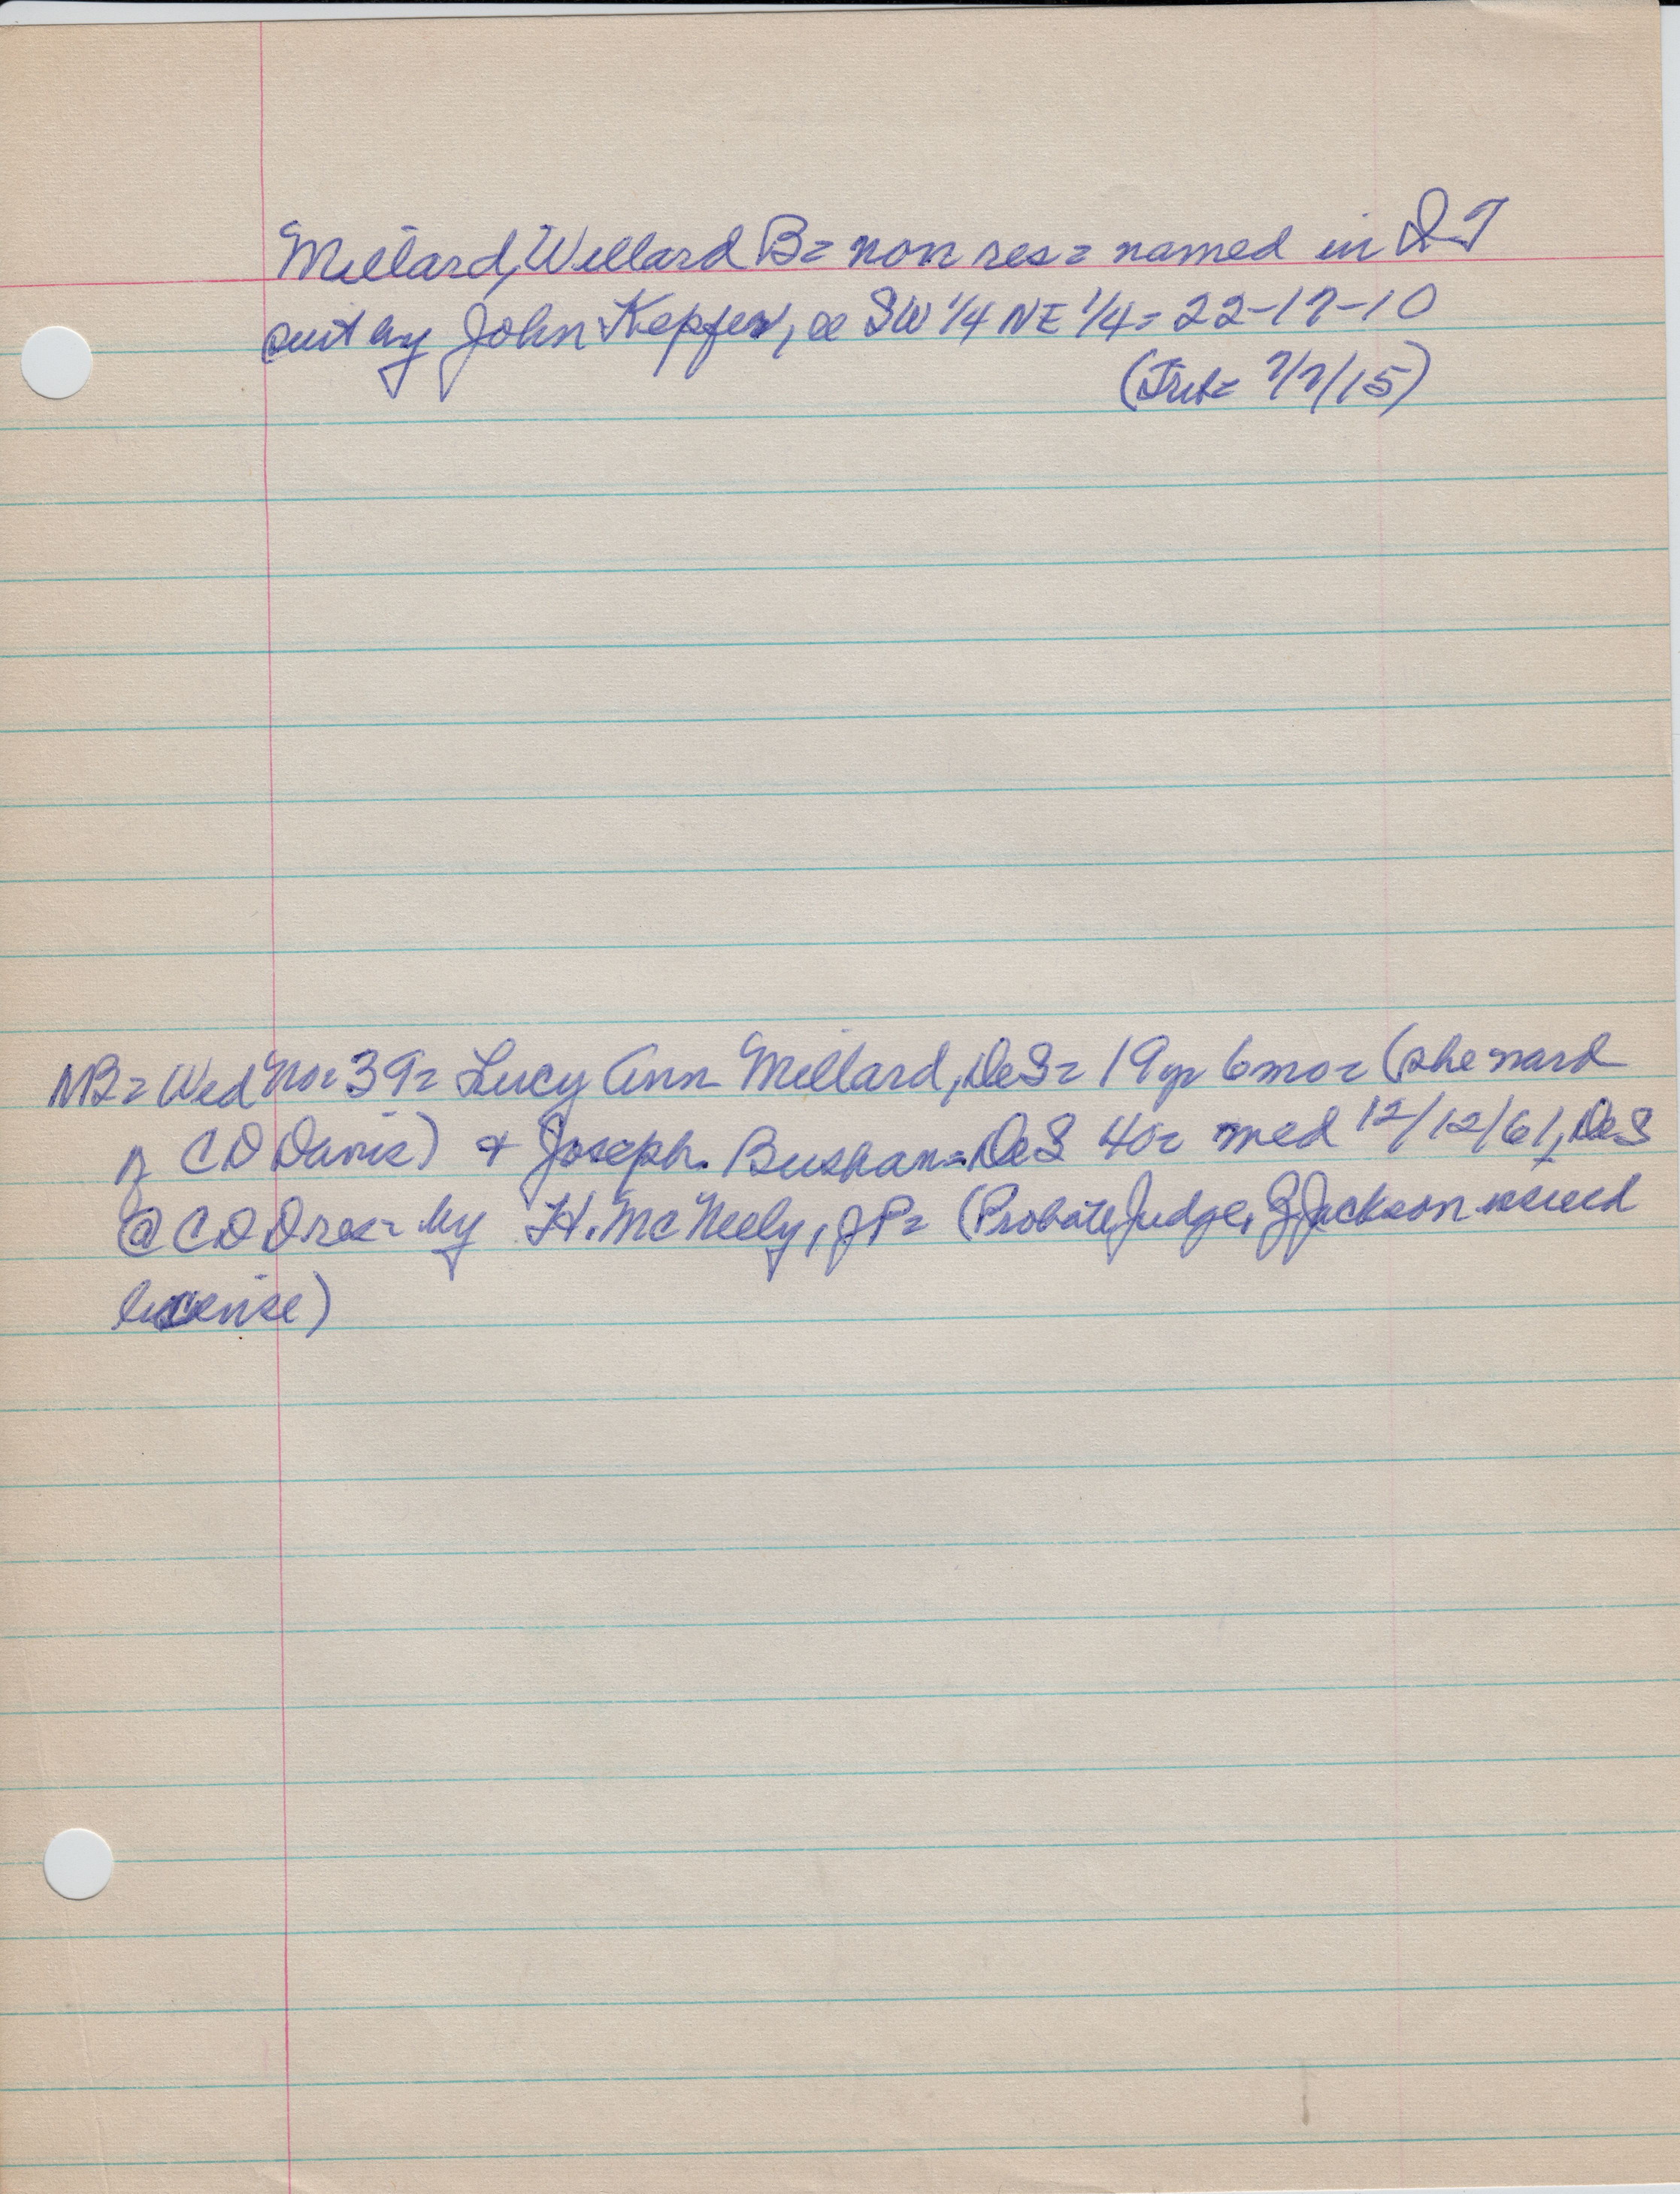 Millard, Willard B = non res = named in QT
suit by John Kepfer, SW 1/4 NE 1/4 = 22-17-10
(Trib = 7/7/15)
MB = Wed No 39 = Lucy Ann Millard, DeS = 19 yr 6 mo = (she ward
of CD Davis) & Joseph Bushan = DeS 40 = med 12/12/61, DeS
@ CDD res = by H. McNeely, JP = (Probate Judge, Z Jackson issued
license)